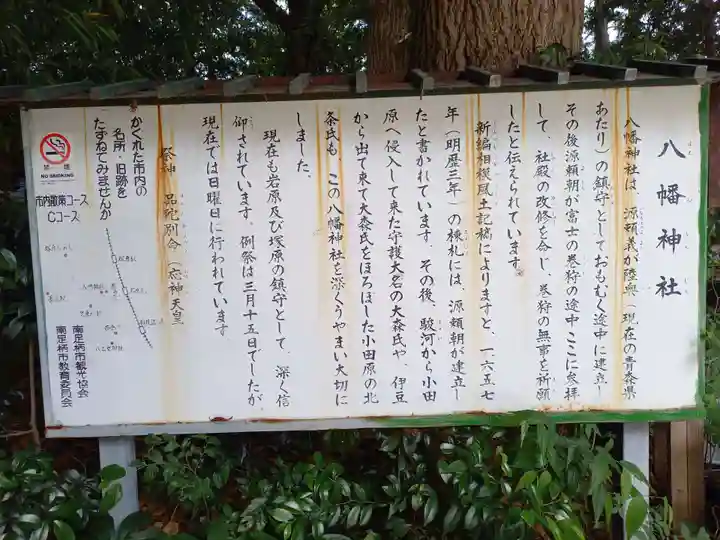 八幡神社
八幡神社は、源頼義が陸奥(現在の青森県
あたり)の鎮守としておもむく途中に建立し
その後源頼朝が富士の巻狩の途中、ここに参拝
して、社殿の改修を命じ、巻狩の無事を祈願
したと伝えられています。
新編相模風土記稿によりますと、一六五七
年(明歴三年)の棟札には、源頼朝が建立し
たと書かれています。その後、駿河から小田
原へ侵入して来た守護大名の大森氏や、伊豆
から出て来て大森氏をほろぼした小田原の北
条氏も、この八幡神社を深くうやまい大切に
しました。
現在も岩原及び塚原の鎮守として、深く信
仰されています。例祭は三月十五日でしたが、
現在では日曜日に行われています
祭神 品陀別命(応神天皇
かくれた市内の
名所・旧跡を
たずねてみませんか
禁煙
NO SMOKING
市内散策コース
Cコース
南足柄市観光協会
南足柄市教育委員会